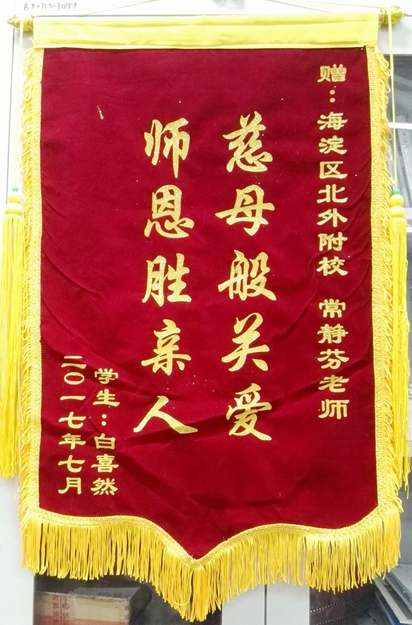 赠：海淀区北外附校 常静芬老师
慈母般关爱
师恩胜亲人
学生：白喜然
二〇一七年七月